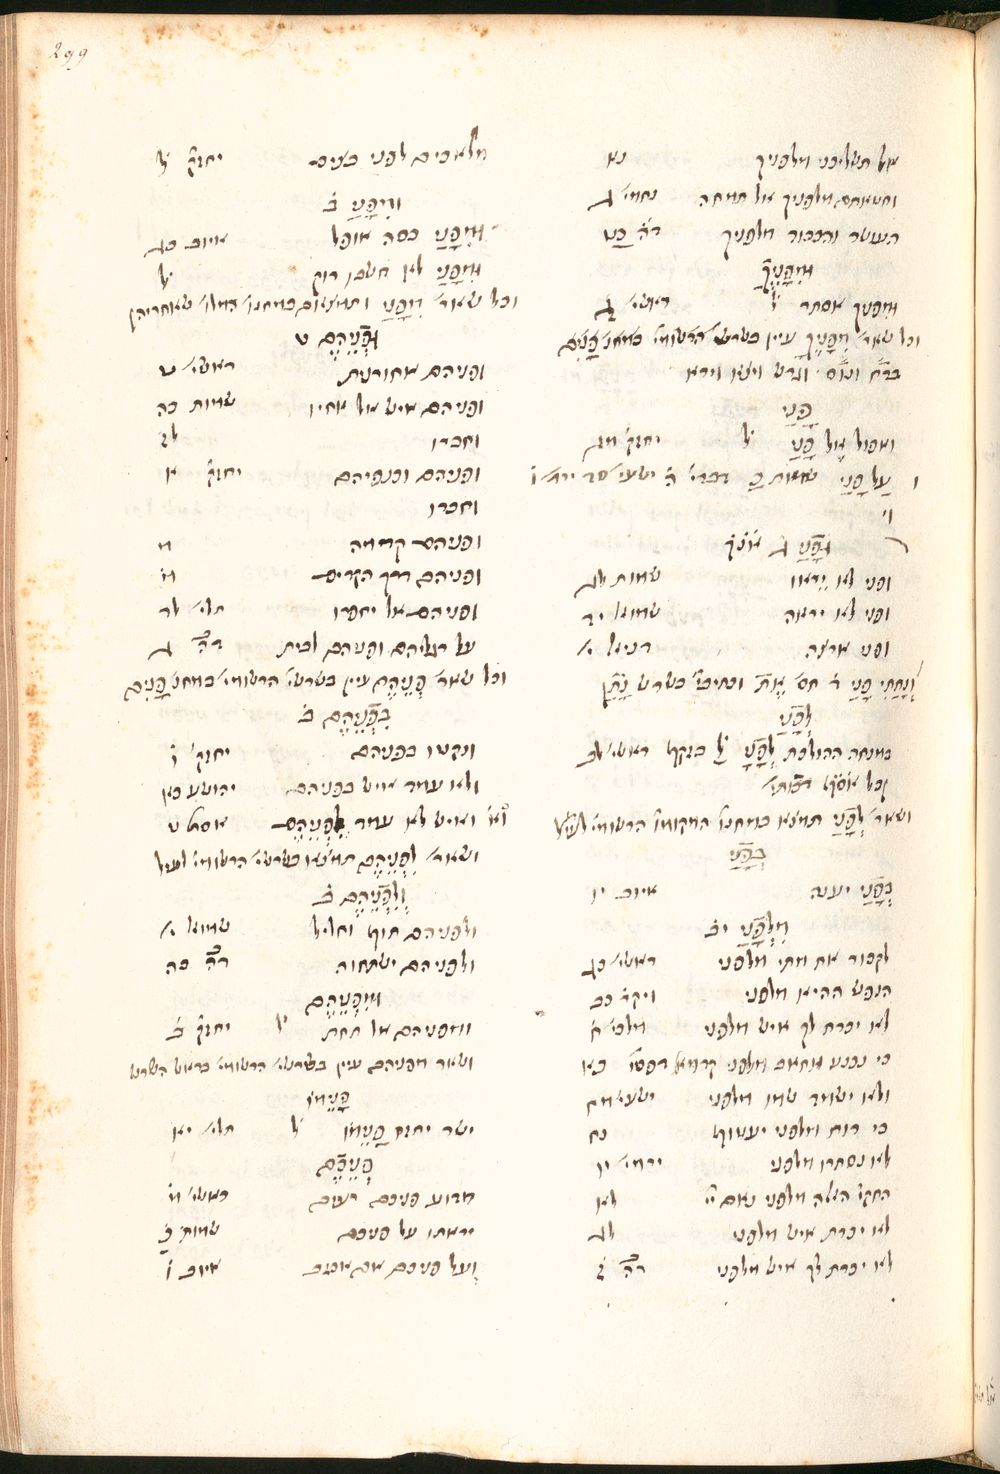 299
אל תשליכני מלפניך נא
וחטאתם מלפניך אל תמחה נחמי׳ ג
העשר והכבוד מלפניך ד״ה כט
וּמִפָּנֶיךָ
ומפניך אסתר ל׳ ראשי׳ ד
וכל שאר׳ מִפָּנֶיךָ עיין בשרש׳ הרשומי׳ במחנ׳ פָּנִים
ברח ונוס וגרש ויצא וירא
פָּנָי
ואפול אֶל פָּנַי ל׳ יחזק׳ מג
ו עַל פָּנַי שמות כ דברי׳ ה ישעי׳ סה ירמי׳ ו
וי׳
וּפָנַי ג
ופני לא יֵרָאוּ שמות לג
ופני לא יראה שמואל יד
ופני ארצה דניאל י׳
וְנָתַתִּי פָנַי
לְפָנַי
במנחה ההולכת לְפָנָי ל׳ ראשי׳ לב
ושאר׳ לְפָנַי תמצא במחנה המקומו׳ הרשומי׳ לעיל
בְּפָנַי
בְּפָנַי יענה איוב יו
מִלְּפָנַי יב
לקבור את מתי מלפני ראשי׳ כג
הנפש ההיא מלפני ויקר׳ כב
לא יכרת לך איש מלפני מלכי׳ ח
כי נכנע אחאב מלפני כא
ולא ישמד שמו מלפני ישעי׳ מח
כי רוח מלפני יעטוף נז
לא נסתרו מלפני ירמי׳ יו
החקי׳ האלה מלפני נאם י״י לא
לא יכרת איש מלפני לג
לא יכרת לך איש מלפני ד״ה ב ו
מלאכים לפני בצים יחזק׳ ל
וּמִפְּנֵי ב
וּמִפְּנֵי כסה אופל איוב כג
וּמִפְּנֵי לא חשכו רוק ל׳
וכל שאר׳ מִפְּנֵי ותמצאם במחנה המלו׳ שאחריהן
וּפְנֵיהֶם ט
ופניהם אחורנית ראשי׳ ט
ופניהם איש אל אחיו שמות כה
וחברו לז
ופניהם וכנפיהם יחזק׳ א
וחברו
ופניהם קדמה ח
ופניהם דרך הקדים ח׳
ופניהם אל יחפרו תלי׳ לד
על רגליהם ופניהם לבית ד״ה ב ג
וכל שאר׳ פְּנֵיהֶם עיין בשרשי׳ הרשומי׳ במחנ׳ פָּנִים
בִּפְנֵיהֶם ב
ונקטו בפניהם יחזק׳ ו
ולא עמד איש בפניהם יהושע כא
ואיש לא עמד לִפְנֵיהֶם אסתר ט
ושאר׳ לִפְנֵיהֶם תמצא בשרשי׳ הרשומי׳ לעיל
וְלִפְנֵיהֶם ב
ולפניהם תוף וחליל שמואל י׳
ולפניהם ישתחוה ד״ה ב כה
וּמִפְּנֵיהֶם
ומפניהם אל תחת ל׳ יחזק׳ ב
ושאר מפניהם עיין בשרשי׳ הרשומי׳ בראש השרש
פָּנֵימוֹ
ישר יחזה פָנֵימוֹ ל׳ תלי׳ יא
פְּנֵיכֶם
מדוע פניכם רעים ראשי׳ מ׳
יראתו על פניכם שמות כ
ועל פניכם אם אכזב איוב ו